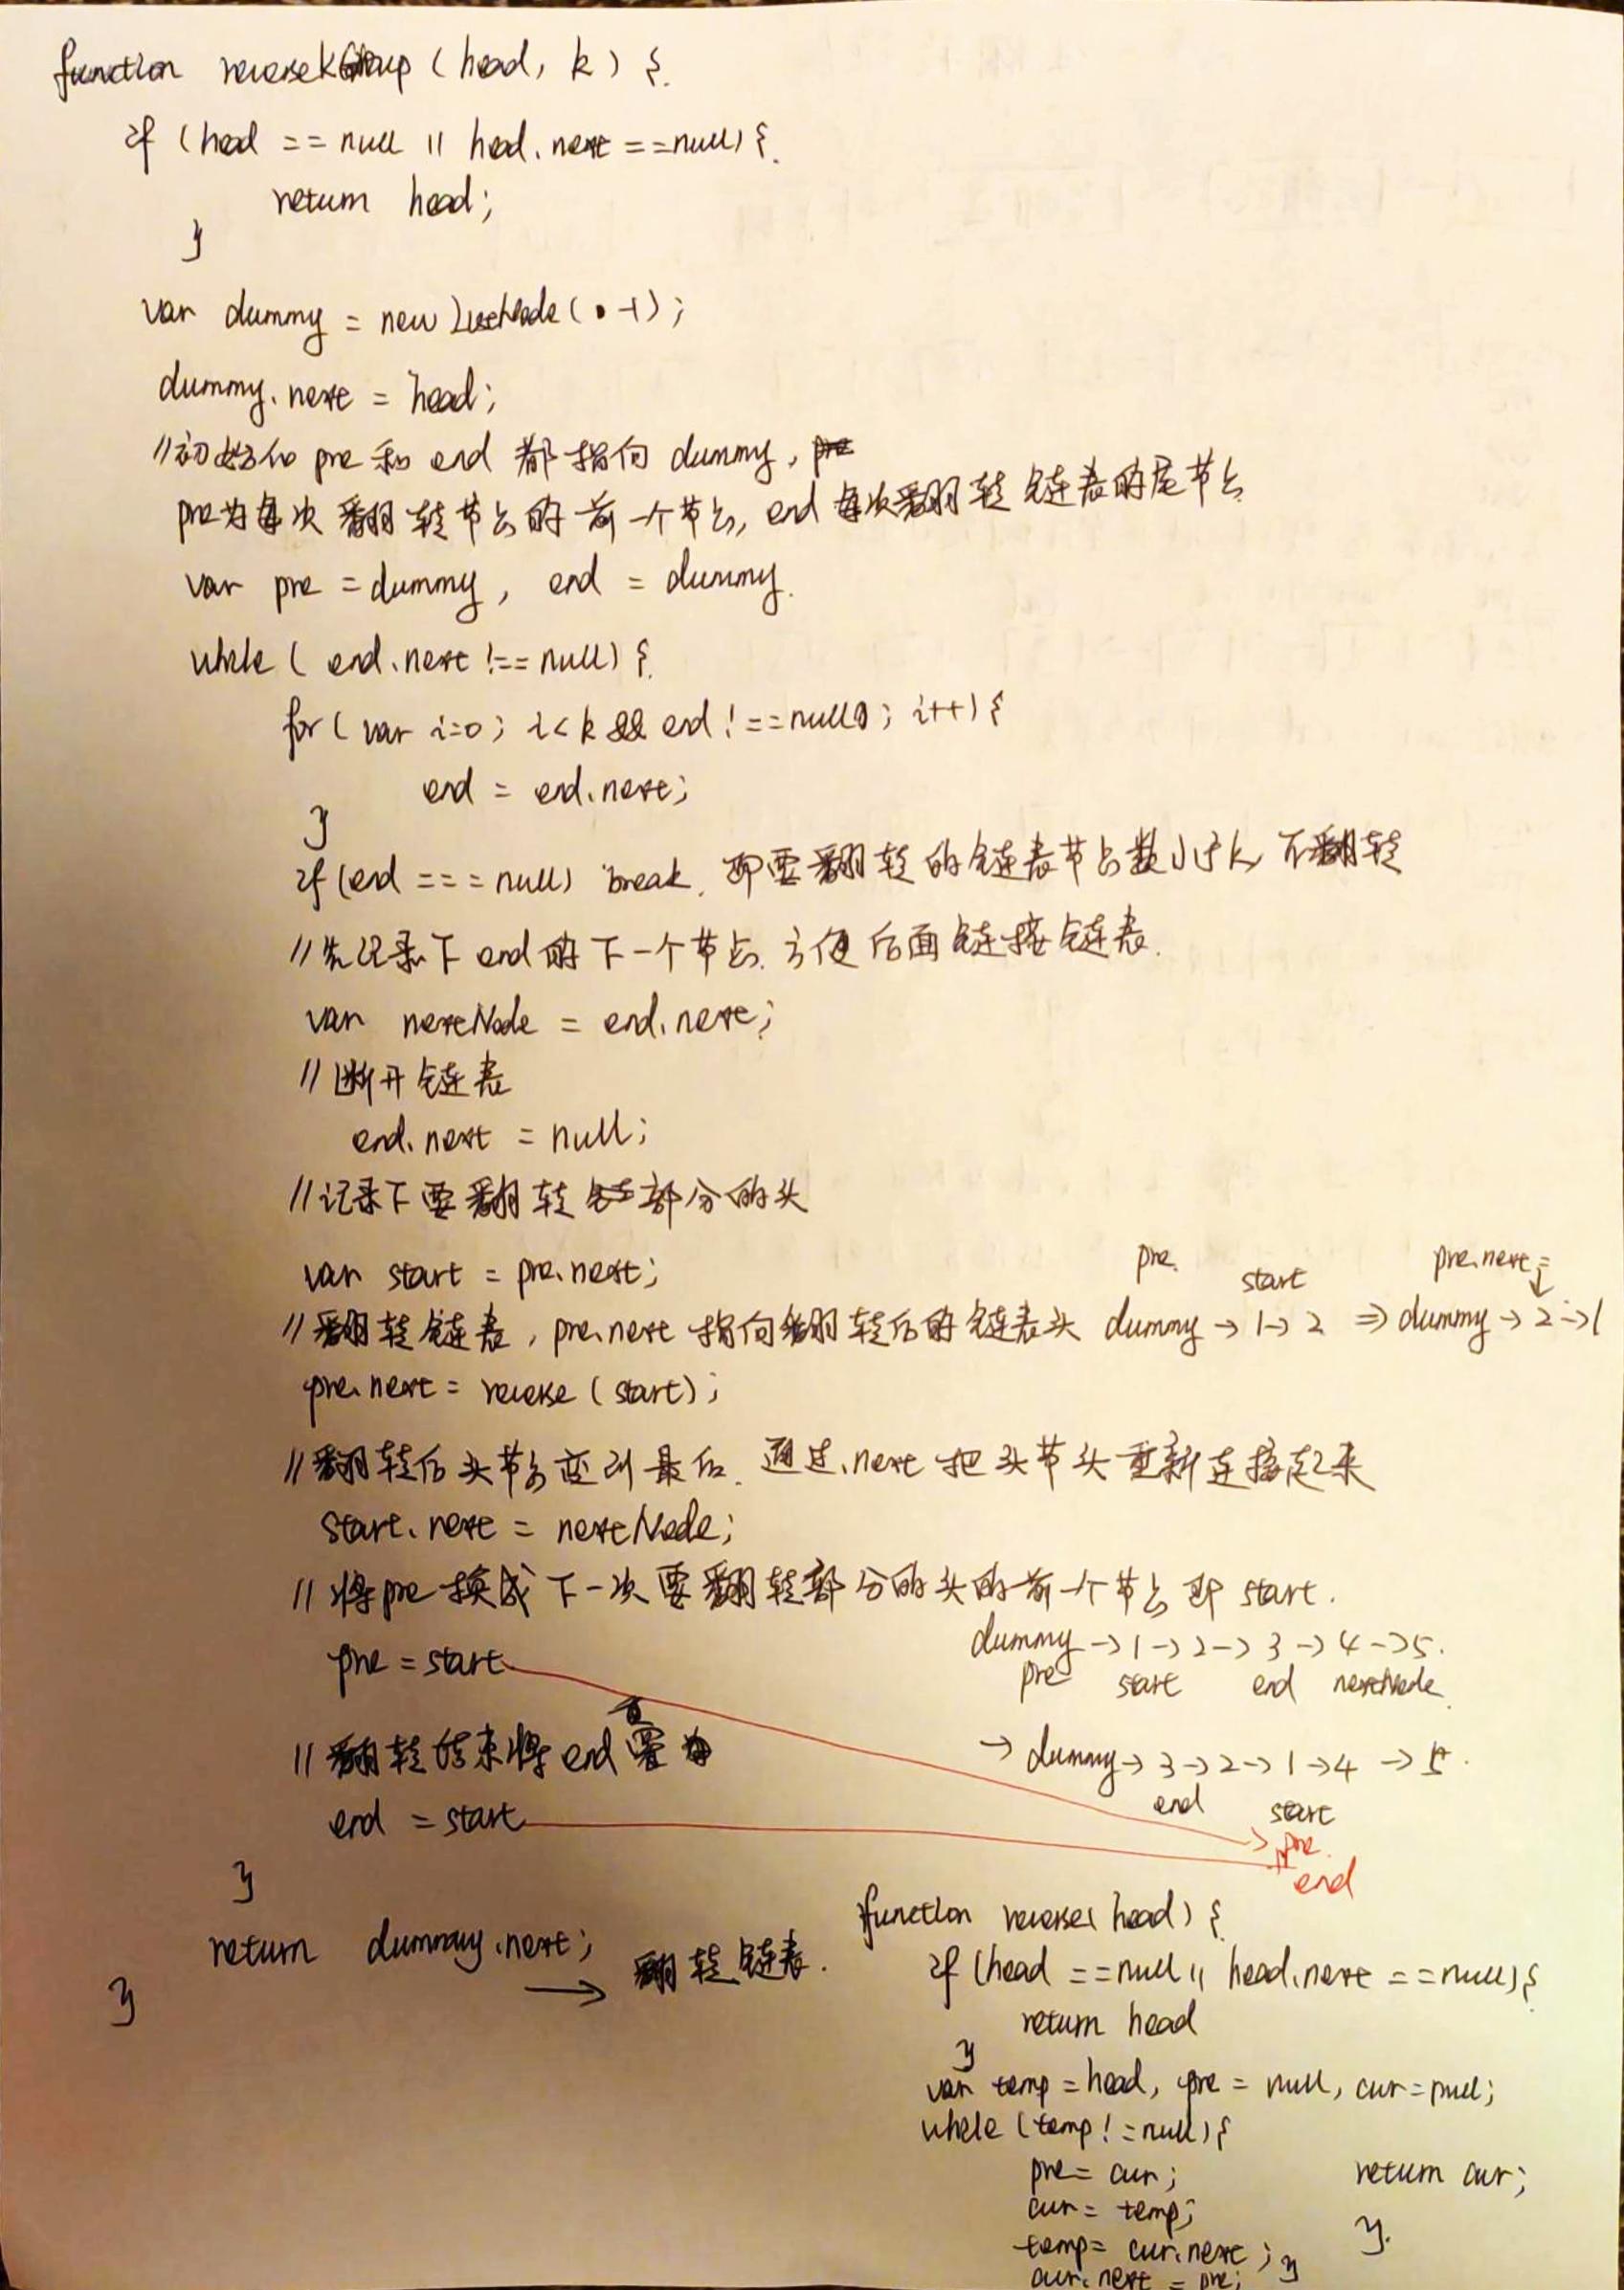 function reverseKGroup (head, k) {
if (head == null || head.next == null) {
return head;
}
var dummy = new ListNode( -1);
dummy.next = head;
//初始化 pre 和 end 都指向 dummy,
pre为每次翻转节点的前一个节点, end 每次翻转链表的尾节点
var pre = dummy, end = dummy.
while ( end.next !== null) {
for ( var i=0; i<k && end !== null; i++) {
end = end.next;
}
if (end === null) break. 即要翻转的链表节点数小于k, 不翻转
//先记录下 end 的下一个节点. 方便后面链接链表.
var nextNode = end.next;
//断开链表
end.next = null;
//记录下要翻转部分的头
var start = pre.next;
pre. start pre.next =
↓
//翻转链表, pre.next 指向翻转后的链表头 dummy → 1 → 2 ⇒ dummy → 2 → 1
pre.next = reverse (start);
//翻转后头节点变到最后. 通过.next 把头节头重新连接起来
start.next = nextNode;
// 将pre 换成下一次要翻转部分的头的前一个节点 即 start.
dummy → 1 → 2 → 3 → 4 → 5.
pre = start
pre start end nextNode
//翻转结束将end 置
→ dummy → 3 → 2 → 1 → 4 → 5.
end start
end = start
pre.
end
}
return dummy.next;
}
→ 翻转链表.
function reverse( head) {
if (head == null || head.next == null) {
return head
}
var temp = head, pre = null, cur = null;
while (temp != null) {
pre = cur; return cur;
cur = temp;
temp = cur.next; }
cur.next = pre; }